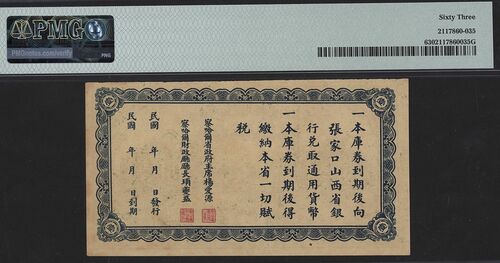 PMG
PMGnotes.com/verify
PNG
Sixty Three
2117860-035
6302117860035G
一本庫券到期後向
張家口山西省銀
行兌取通用貨幣
一本庫券到期後得
繳納本省一切賦
稅
察哈爾省政府主席楊愛源
察哈爾財政廳廳長項霱盛
民國 年 月 日發行
民國 年 月 日到期